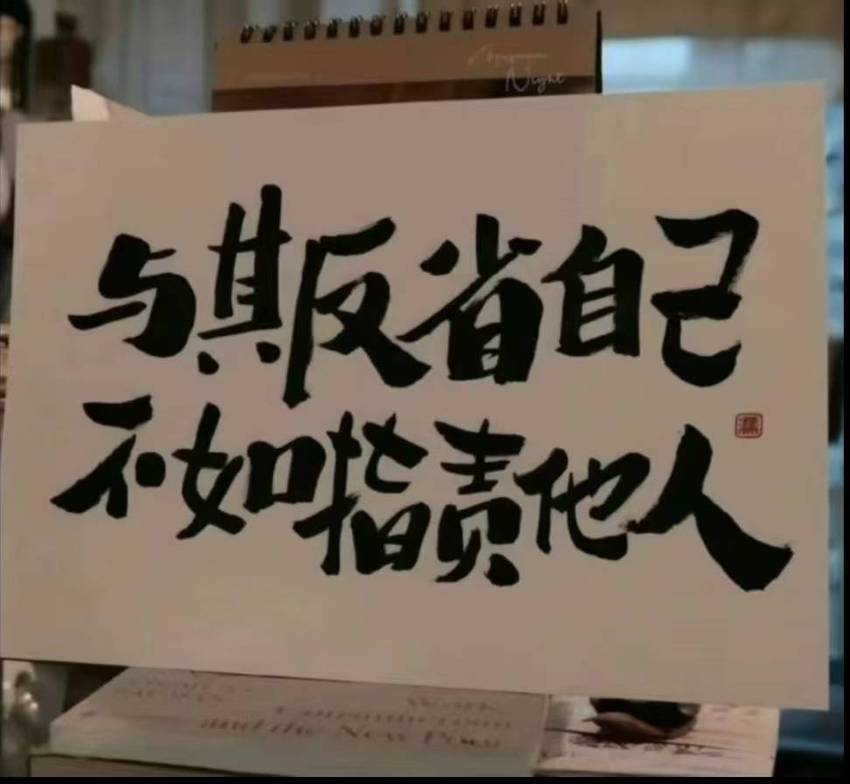 Night
与其反省自己
不如指责他人
Work,
Consumerism
and the New Poor